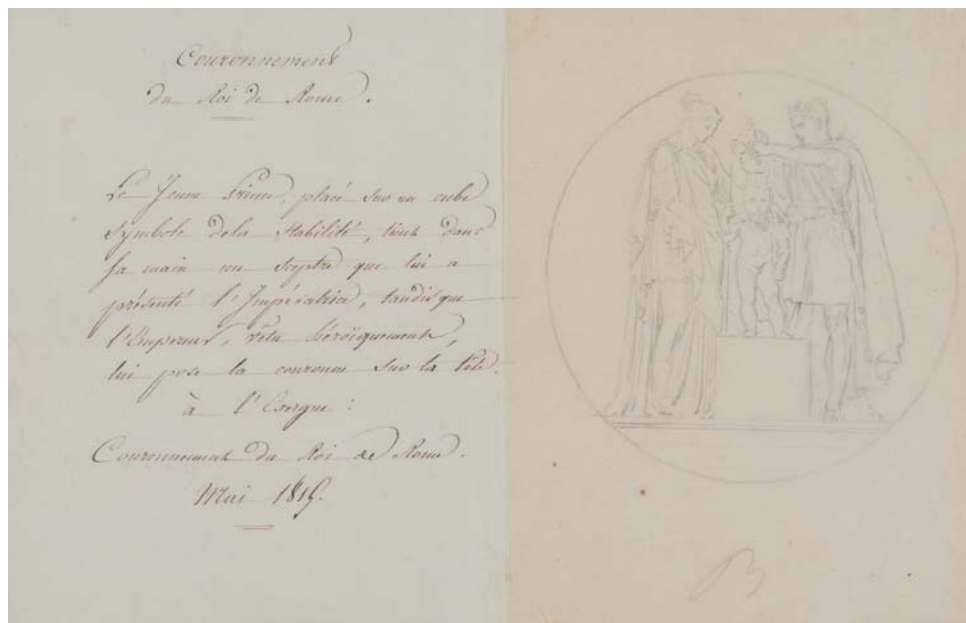 Couronnement
du Roi de Rome.
Le Jeune Prince, placé sur un cube
Symbole dela Stabilité, tient dans
sa main un Sceptre que lui a
présenté l'Impératrice, tandisque
l'Empereur, vêtu héroïquement,
lui pose la couronne sur la tête.
à l'Exergue :
Couronnement du Roi de Rome.
Mai 1815.
B